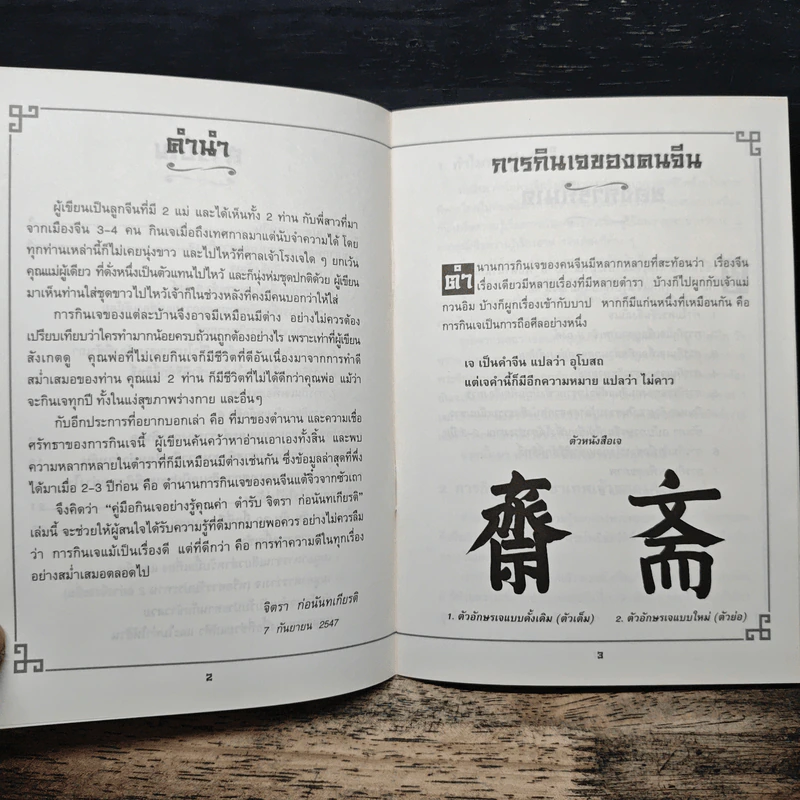 คำนำ
ผู้เขียนเป็นลูกจีนที่มี 2 แม่ และได้เห็นทั้ง 2 ท่าน กับพี่สาวที่มา
จากเมืองจีน 3-4 คน กินเจเมื่อถึงเทศกาลมาแต่นับจำความได้ โดย
ทุกท่านเหล่านี้ก็ไม่เคยนุ่งขาว และไปไหว้ที่ศาลเจ้าโรงเจใด ๆ ยกเว้น
คุณแม่ผู้เดียว ที่ดั่งหนึ่งเป็นตัวแทนไปไหว้ และก็นุ่งห่มชุดปกติด้วย ผู้เขียน
มาเห็นท่านใส่ชุดขาวไปไหว้เจ้าก็ในช่วงหลังที่คงมีคนบอกว่าให้ใส่
การกินเจของแต่ละบ้านจึงอาจมีเหมือนมีต่าง อย่างไม่ควรต้อง
เปรียบเทียบว่าใครทำมากน้อยครบถ้วนถูกต้องอย่างไร เพราะเท่าที่ผู้เขียน
สังเกตดู คุณพ่อที่ไม่เคยกินเจก็มีชีวิตที่ดีอันเนื่องมาจากการทำดี
สม่ำเสมอของท่าน คุณแม่ 2 ท่าน ก็มีชีวิตที่ไม่ได้ดีกว่าคุณพ่อ แม้ว่า
จะกินเจทุกปี ทั้งในแง่สุขภาพร่างกาย และอื่นๆ
กับอีกประการที่อยากบอกเล่า คือ ที่มาของตำนาน และความเชื่อ
ศรัทธาของการกินเจนี้ ผู้เขียนค้นคว้าหาอ่านเอาเองทั้งสิ้น และพบ
ความหลากหลายในตำราที่ก็มีเหมือนมีต่างเช่นกัน ซึ่งข้อมูลล่าสุดที่พึ่ง
ได้มาเมื่อ 2-3 ปีก่อน คือ ตำนานการกินเจของคนจีนแต้จิ๋วจากซัวเถา
จึงคิดว่า "คู่มือกินเจอย่างรู้คุณค่า ตำรับ จิตรา ก่อนันทเกียรติ"
เล่มนี้ จะช่วยให้ผู้สนใจได้รับความรู้ที่ดีมากมายพอควร อย่างไรก็ลืม
ว่า การกินเจแม้เป็นเรื่องดี แต่ที่ดีกว่า คือ การทำความดีในทุกเรื่อง
อย่างสม่ำเสมอตลอดไป
จิตรา ก่อนันทเกียรติ
7 กันยายน 2547
2
การกินเจของคนจีน
ตำนานการกินเจของคนจีนมีหลากหลายที่สะท้อนว่า เรื่องจีน
เรื่องเดียวมีหลายเรื่องที่มีหลายตำรา บ้างก็ไปผูกกับเจ้าแม่
กวนอิม บ้างก็ผูกเรื่องเข้ากับบาป หากก็มีแก่นหนึ่งที่เหมือนกัน คือ
การกินเจเป็นการถือศีลอย่างหนึ่ง
เจ เป็นคำจีน แปลว่า อุโบสถ
แต่เจคำนี้ก็มีอีกความหมาย แปลว่า ไม่คาว
ตัวหนังสือเจ
齋 斋
1. ตัวอักษรเจแบบดั้งเดิม (ตัวเต็ม) 2. ตัวอักษรเจแบบใหม่ (ตัวย่อ)
3